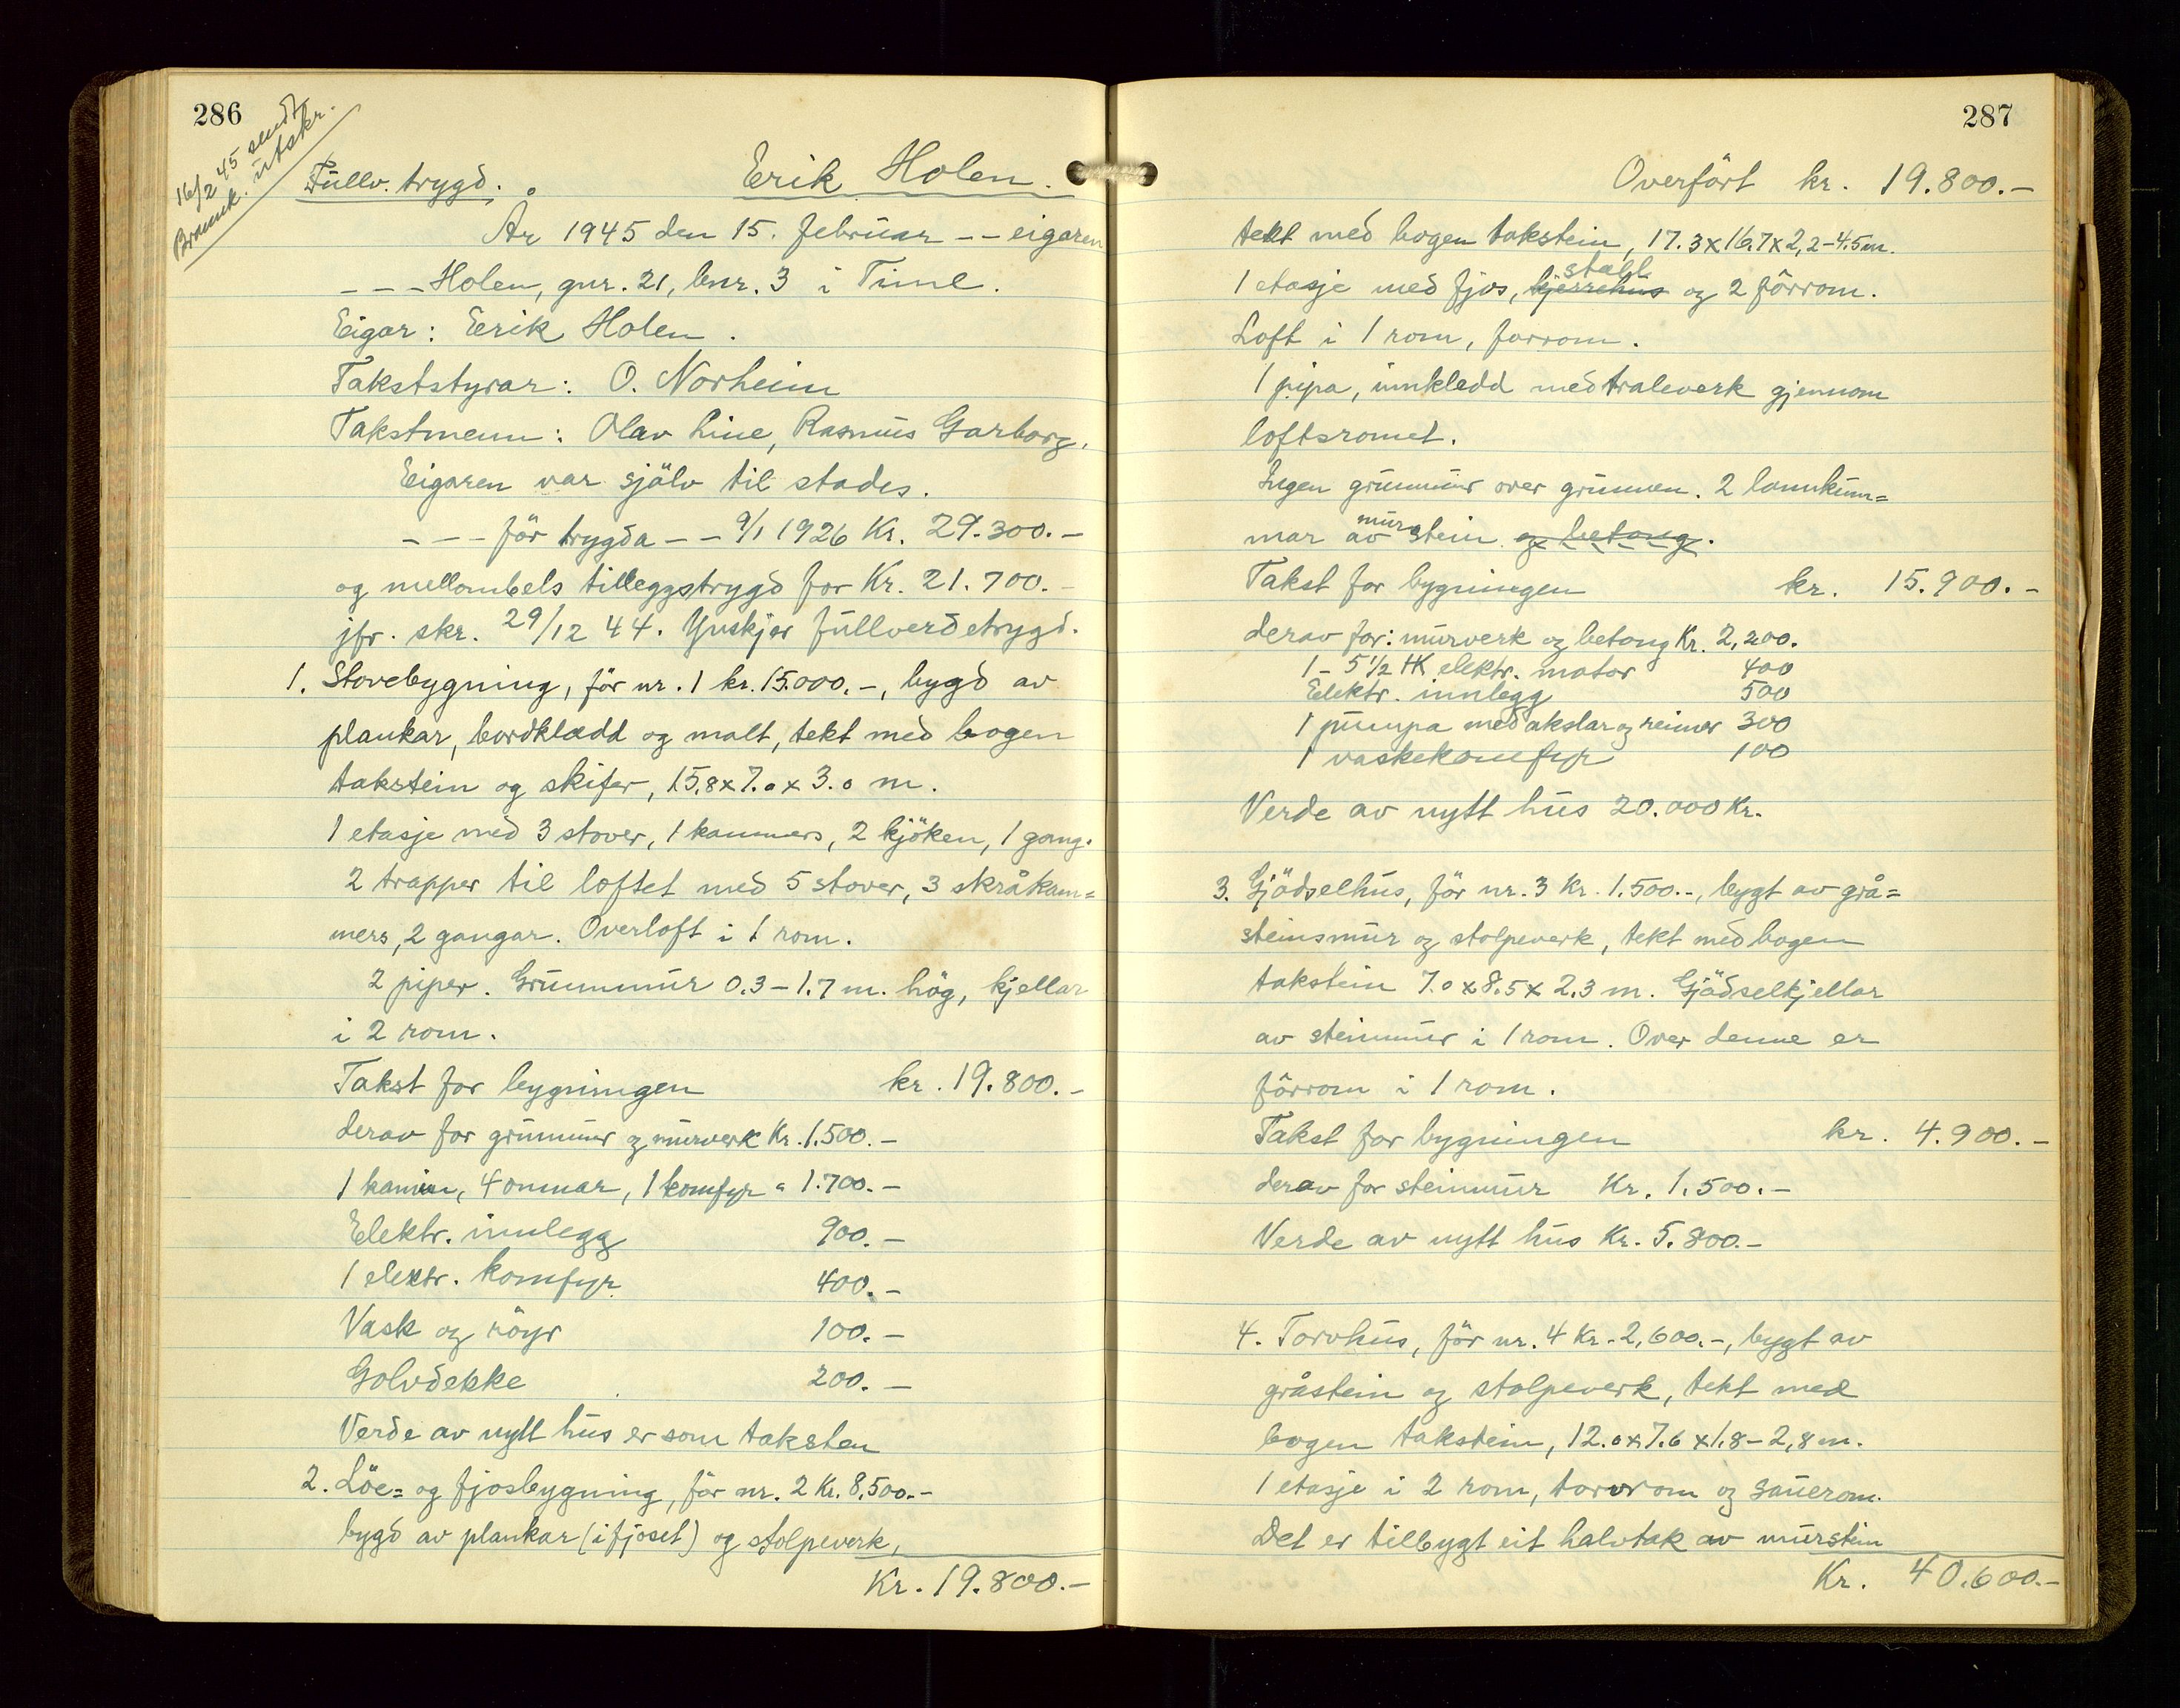 286
16/2 45 sendt
Brannk. utskr.
Fullv. trygd.
Erik Holen.
År 1945 den 15. februar -- eigaren
--- Holen, gnr. 21, bnr. 3 i Time.
Eigar: Erik Holen.
Takststyrar: O. Norheim
Takstmenn: Olav Line, Rasmus Garborg.
Eigaren var sjölv til stades.
--- för trygda -- 9/1 1926 Kr. 29.300.-
og mellombels tilleggstrygd for Kr. 21.700.-
jfr. skr. 29/12 44. Ynskjer fullverdetrygd.
1. Stovebygning, för nr. 1 kr. 15.000.-, bygd av
plankar, bordklædd og malt, tekt med bogen
takstein og skifer, 15,8 x 7.0 x 3.0 m.
1 etasje med 3 stover, 1 kammers, 2 kjöken, 1 gang.
2 trapper til loftet med 5 stover, 3 skråkam=
mers, 2 gangar. Overloft i 1 rom.
2 piper. Grunnmur 0.3 - 1.7 m. hög, kjellar
i 2 rom.
Takst for bygningen kr. 19.800.-
derav for grunnmur og murverk Kr. 1.500.-
1 kamin, 4 omnar, 1 komfyr " 1.700.-
Elektr. innlegg 900.-
1 elektr. komfyr 400.-
Vask og röyr 100.-
Golvdekke 200.-
Verde av nytt hus er som taksten
2. Löe= og fjosbygning, för nr. 2 Kr. 8,500.-
bygd av plankar (i fjoset) og stolpeverk,
Kr. 19.800.-
287
Overfört kr. 19.800.-
tekt med bogen takstein, 17.3 x 16.7 x 2,2 - 4.5 m.
stall
1 etasje med fjos, kjerrehus og 2 fôrrom.
Loft i 1 rom, forrom.
1 pipa, innkledd med traleverk gjennom
loftsromet.
Ingen grunnmur over grunnen. 2 lannkum=
mur
mar av stein og betong.
Takst for bygningen kr. 15.900.-
derav for: murverk og betong Kr. 2,200.
1 - 5 1/2 HK elektr. motor 400
Elektr. innlegg 500
1 pumpa med akslar og reimer 300
1 vaskekomfyr 100
Verde av nytt hus 20.000 Kr.
3. Gjödselhus, för nr. 3 Kr. 1.500.-, bygt av grå=
steinsmur og stolpeverk, tekt med bogen
takstein 7.0 x 8.5 x 2.3 m. Gjödselkjellar
av steinmur i 1 rom. Over denne er
fôrrom i 1 rom.
Takst for bygningen kr. 4.900.-
derav for steinmur Kr. 1.500.-
Verde av nytt hus Kr. 5.800.-
4. Torvhus, för nr. 4 Kr. 2,600.-, bygt av
gråstein og stolpeverk, tekt med
bogen takstein, 12.0 x 7.6 x 1.8 - 2,8 m.
1 etasje i 2 rom, torvrom og sauerom.
Det er tilbygt eit halvtak av murstein
Kr. 40.600.-